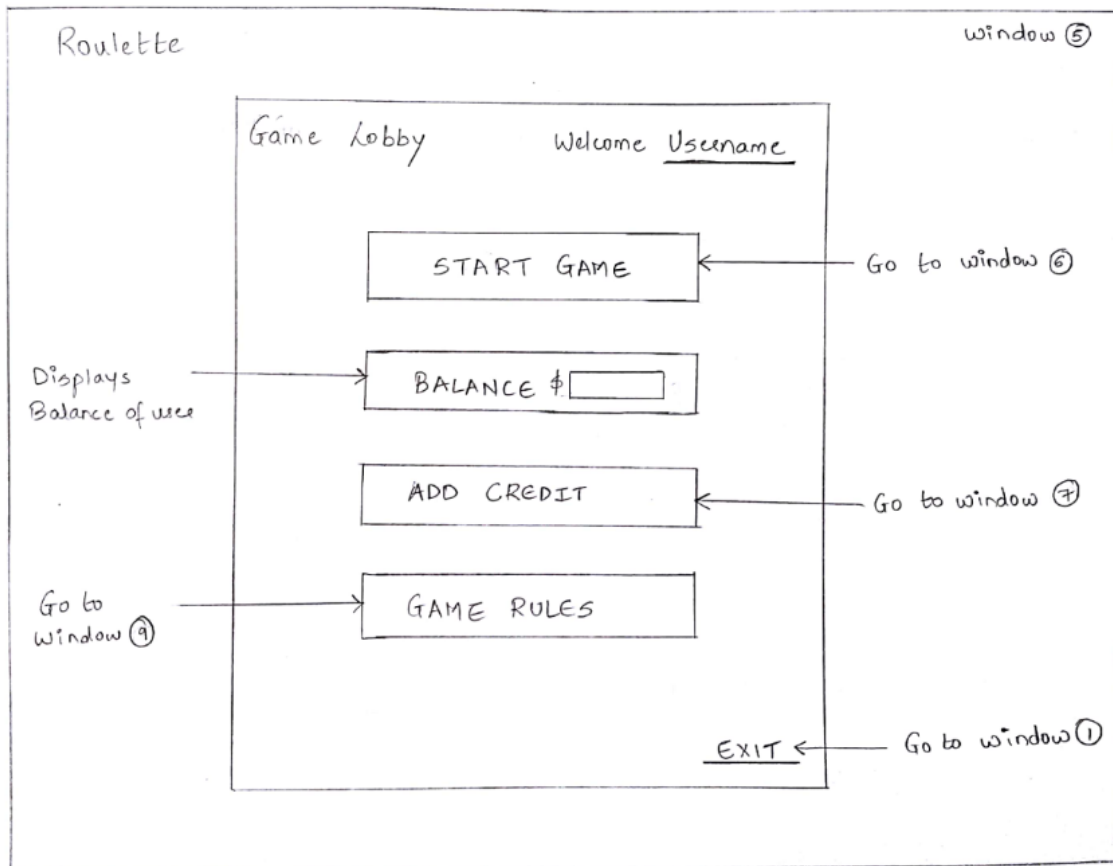 Roulette
window ⑤
Game Lobby
Welcome Username
START GAME
Go to window ⑥
Displays
Balance of user
BALANCE $
ADD CREDIT
Go to window ⑦
Go to
window ⑨
GAME RULES
EXIT
Go to window ①